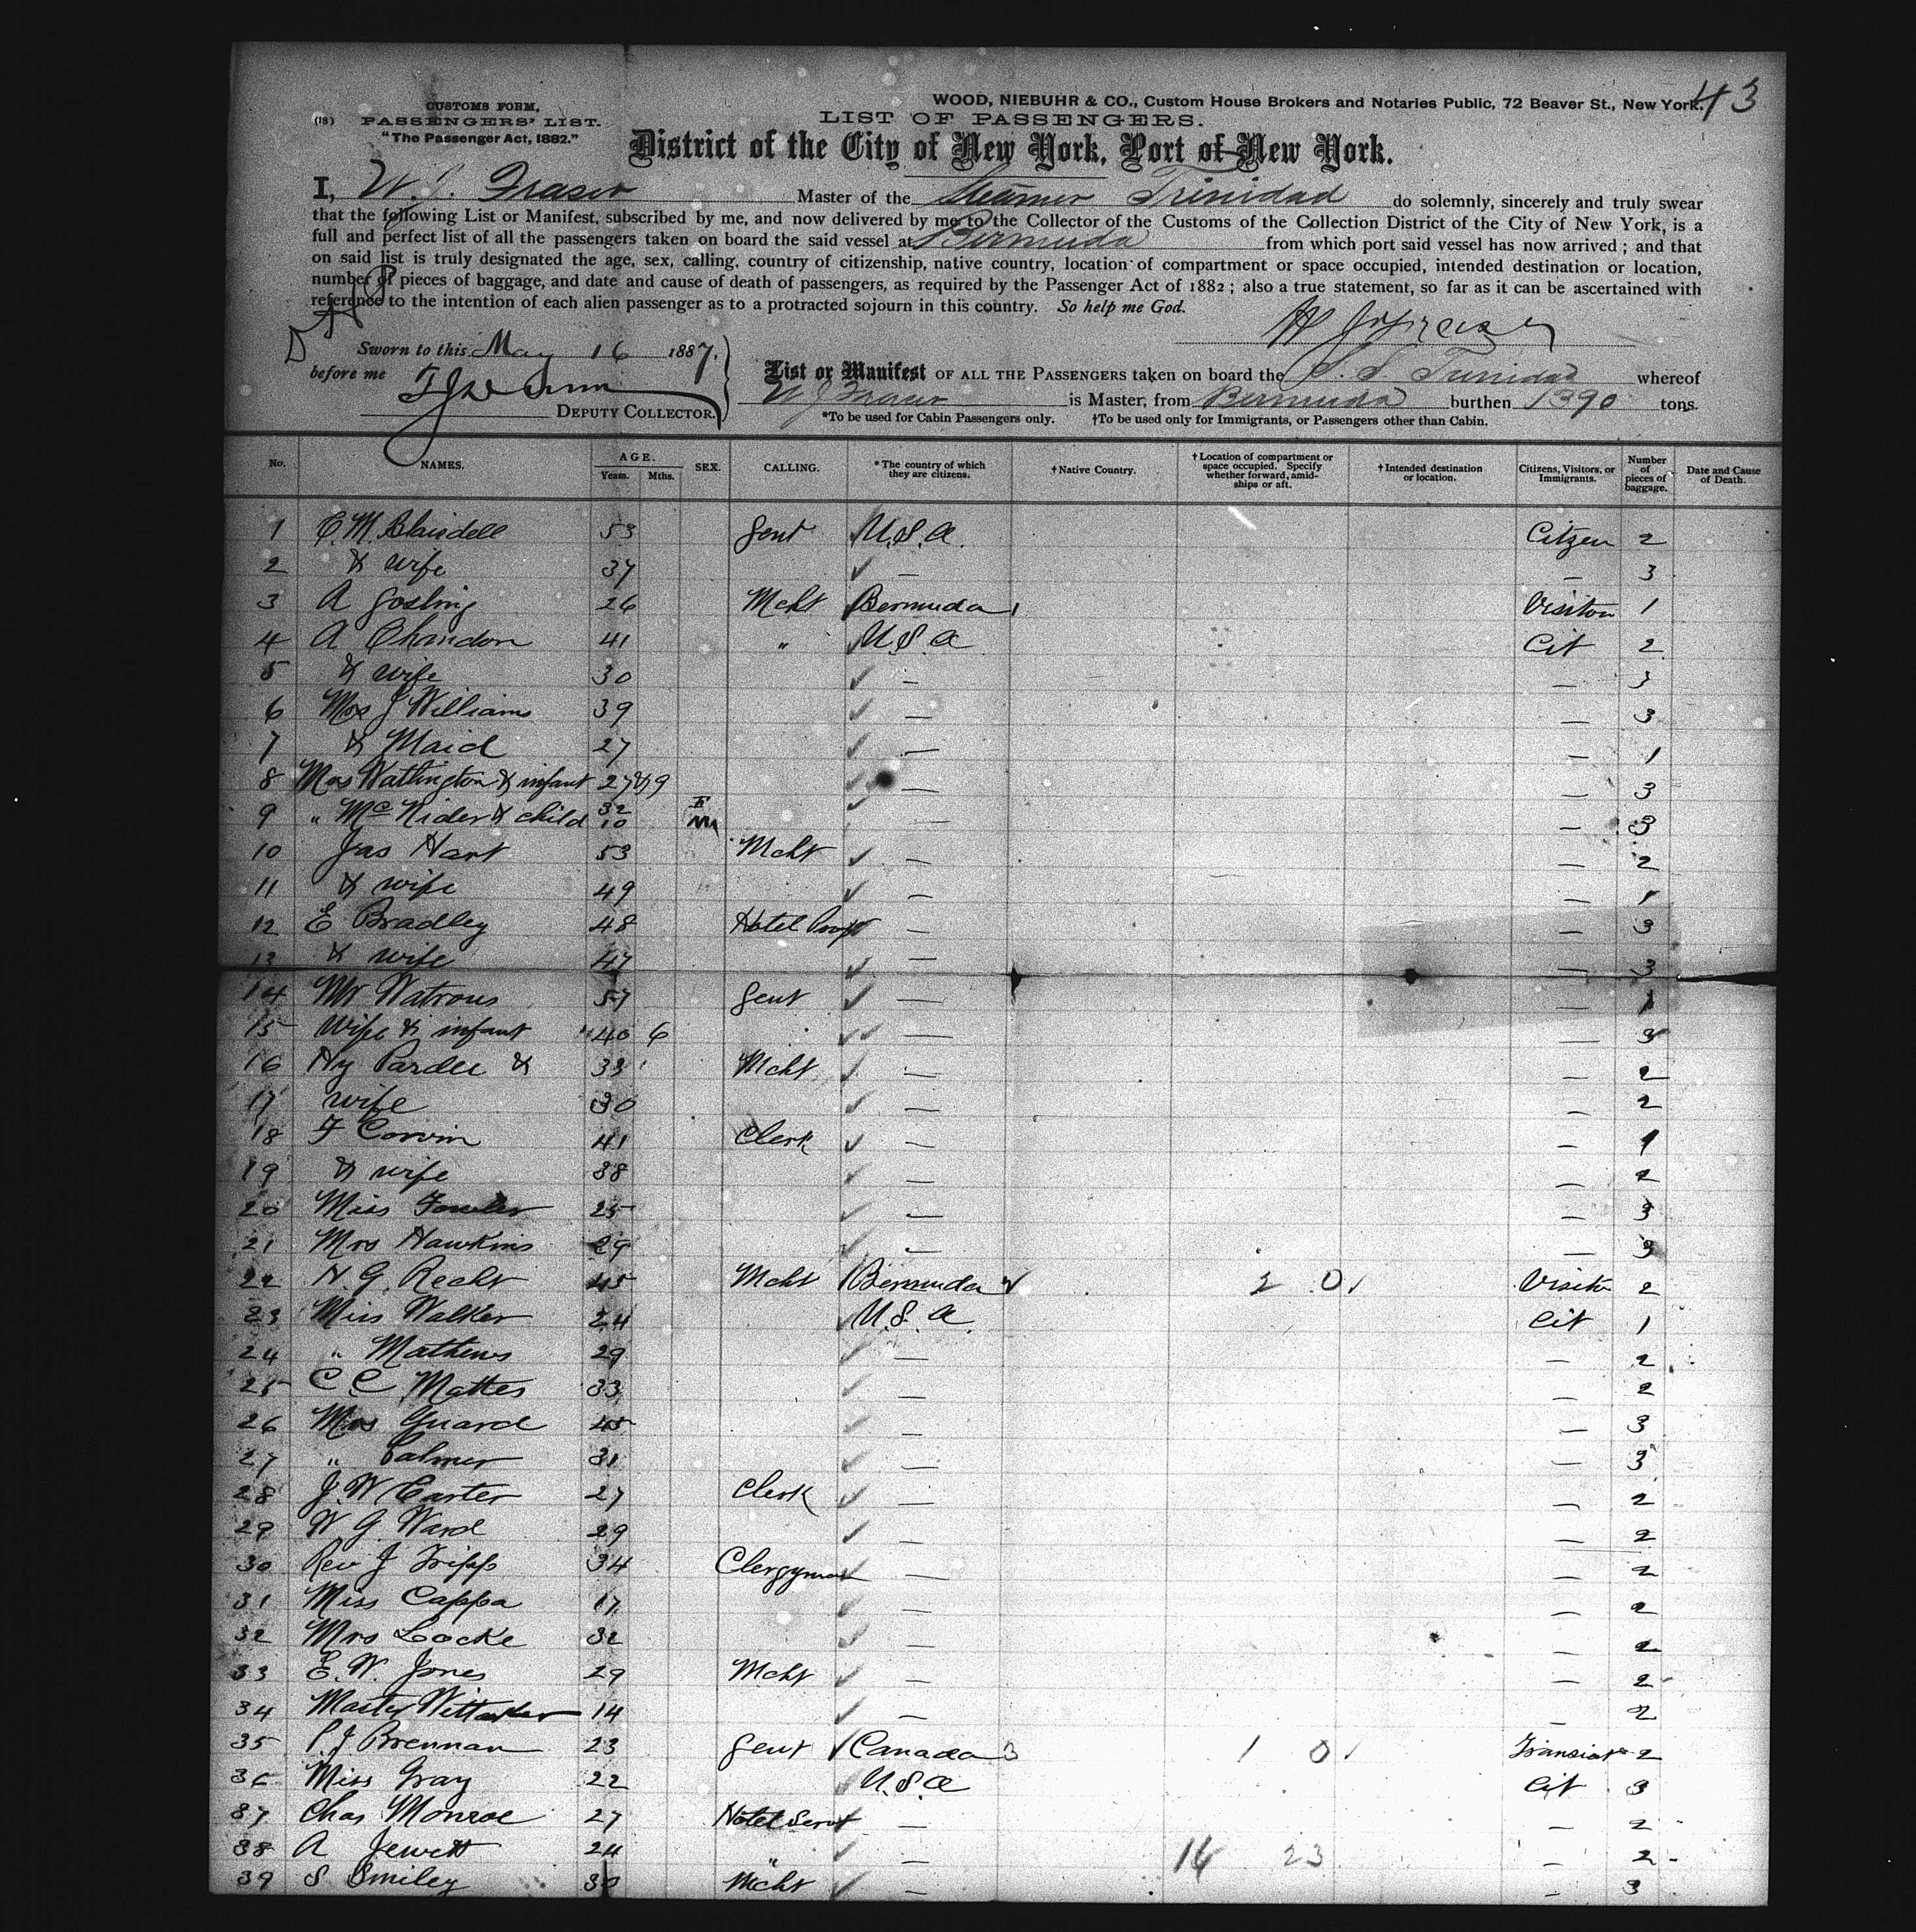 43
WOOD, NIEBUHR & CO., Custom House Brokers and Notaries Public, 72 Beaver St., New York.
CUSTOMS FORM,
(18) PASSENGERS' LIST.
"The Passenger Act, 1882."
LIST OF PASSENGERS.
District of the City of New York, Port of New York.
I, W. J. Fraser Master of the Steamer Trinidad do solemnly, sincerely and truly swear
that the following List or Manifest, subscribed by me, and now delivered by me to the Collector of the Customs of the Collection District of the City of New York, is a
full and perfect list of all the passengers taken on board the said vessel at Bermuda from which port said vessel has now arrived; and that
on said list is truly designated the age, sex, calling, country of citizenship, native country, location of compartment or space occupied, intended destination or location,
number of pieces of baggage, and date and cause of death of passengers, as required by the Passenger Act of 1882; also a true statement, so far as it can be ascertained with
reference to the intention of each alien passenger as to a protracted sojourn in this country. So help me God.
W J Fraser
Sworn to this May 16 1887.
before me
DEPUTY COLLECTOR.
List or Manifest OF ALL THE PASSENGERS taken on board the S. S Trinidad whereof
W J Fraser is Master, from Bermuda burthen 1390 tons.
*To be used for Cabin Passengers only. †To be used only for Immigrants, or Passengers other than Cabin.
No. NAMES. AGE. Years. Mths. SEX. CALLING. *The country of which they are citizens. †Native Country. †Location of compartment or space occupied. Specify whether forward, amidships or aft. †Intended destination or location. Citizens, Visitors, or Immigrants. Number of pieces of baggage. Date and Cause of Death.
1 C. M. Blaisdell 53 Gent U.S.A. Citizen 2
2 & wife 37 — — 3
3 A Gosling 26 Mcht Bermuda 1 Visitor 1
4 A Chandon 41 " U.S.A Cit 2
5 & wife 30 — — 3
6 Mrs J Williams 39 — — 3
7 & Maid 27 — — 1
8 Mrs Watlington & infant 27 & 9 — — 3
9 " McNider & child 32 10 F M — — 3
10 Jas Hart 53 Mcht — — 2
11 & wife 49 — — 1
12 E Bradley 48 Hotel Prop — — 3
13 & wife 47 — — 3
14 Mr Watrous 57 Gent — — 1
15 Wife & infant 40 6 — — 3
16 Hy Pardee & 33 Mcht — — 2
17 wife 30 — — 2
18 F Corwin 41 Clerk — — 1
19 & wife 38 — — 2
20 Miss Fowler 25 — — 3
21 Mrs Hawkins 29 — — 3
22 H. G. Recht 45 Mcht Bermuda 2 0 Visitor 2
23 Miss Walker 24 U.S.A. Cit 1
24 " Mathews 29 — — 2
25 C C Mattes 33 — — 2
26 Mrs Guard 45 — — 3
27 " Palmer 31 — — 3
28 J. W Carter 27 Clerk — — 2
29 W G. Ward 29 — — 2
30 Rev J Tripp 34 Clergyman — — 2
31 Miss Cappa 17 — — 2
32 Mrs Locke 32 — — 2
33 E. W. Jones 29 Mcht — — 2
34 Master Wittaker 14 — — 2
35 P. J Brennan 23 Gent Canada 3 1 0 Transient 2
36 Miss Gray 22 U.S.A Cit 3
37 Chas Monroe 27 Hotel Servt — — 2
38 A Jewett 24 " — 16 23 — 2
39 S Smiley 30 Mcht — — 3